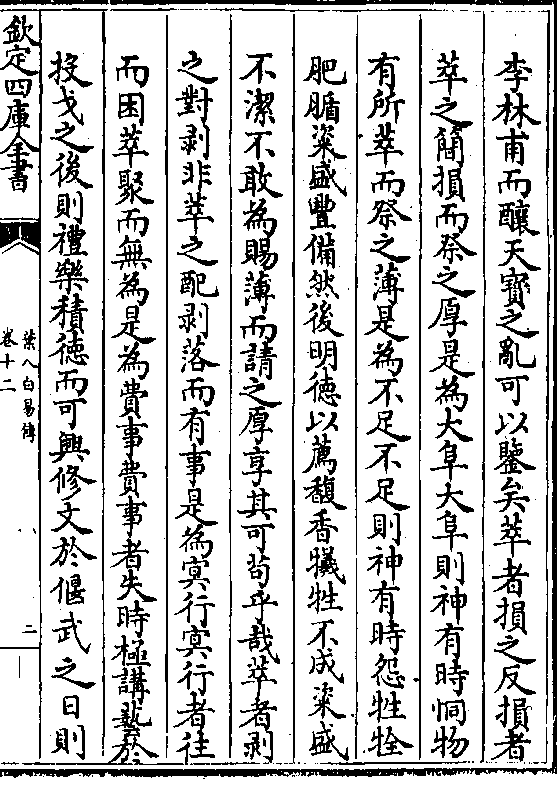 李林甫而釀天寶之亂可以鑒矣萃者損之反損者
萃之簡損而祭之厚是為大阜大阜則神有時恫物
有所萃而祭之薄是為不足不足則神有時怨牲牷
肥腯粢盛豐備然後明德以薦馥香犧牲不成粢盛
不潔不敢為賜薄而請之厚享其可苟乎哉萃者剥
之對剥非萃之配剥落而有事是為寅行寅行者往
而困萃聚而無為是為費事費事者失時極講藝於
投戈之後則禮樂積德而可興修文於偃武之日則
欽定四庫全書
葉八白易傳
卷十二
二